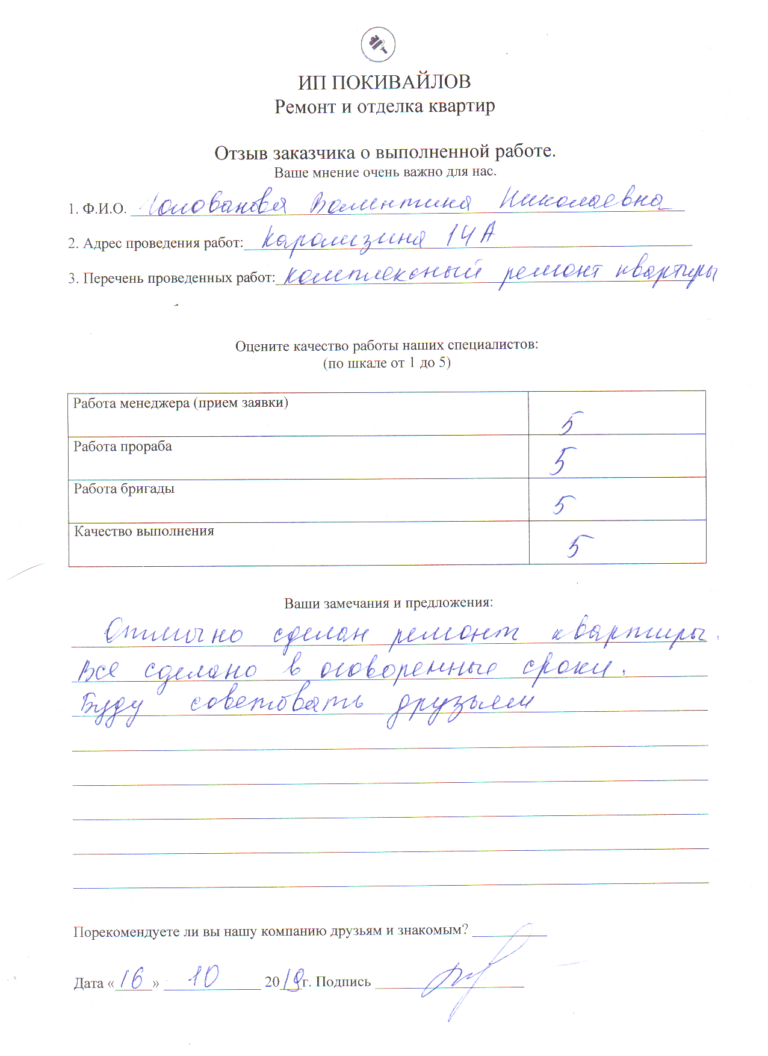 ИП ПОКИВАЙЛОВ
Ремонт и отделка квартир
Отзыв заказчика о выполненной работе.
Ваше мнение очень важно для нас.
1. Ф.И.О. Голованова Валентина Николаевна
2. Адрес проведения работ: Карамзина 14А
3. Перечень проведенных работ: комплексный ремонт квартиры
Оцените качество работы наших специалистов:
(по шкале от 1 до 5)
Работа менеджера (прием заявки) 5
Работа прораба 5
Работа бригады 5
Качество выполнения 5
Ваши замечания и предложения:
Отлично сделан ремонт квартиры.
Все сделано в оговоренные сроки.
Буду советовать друзьям
Порекомендуете ли вы нашу компанию друзьям и знакомым?
Дата «16» 10 2019г. Подпись